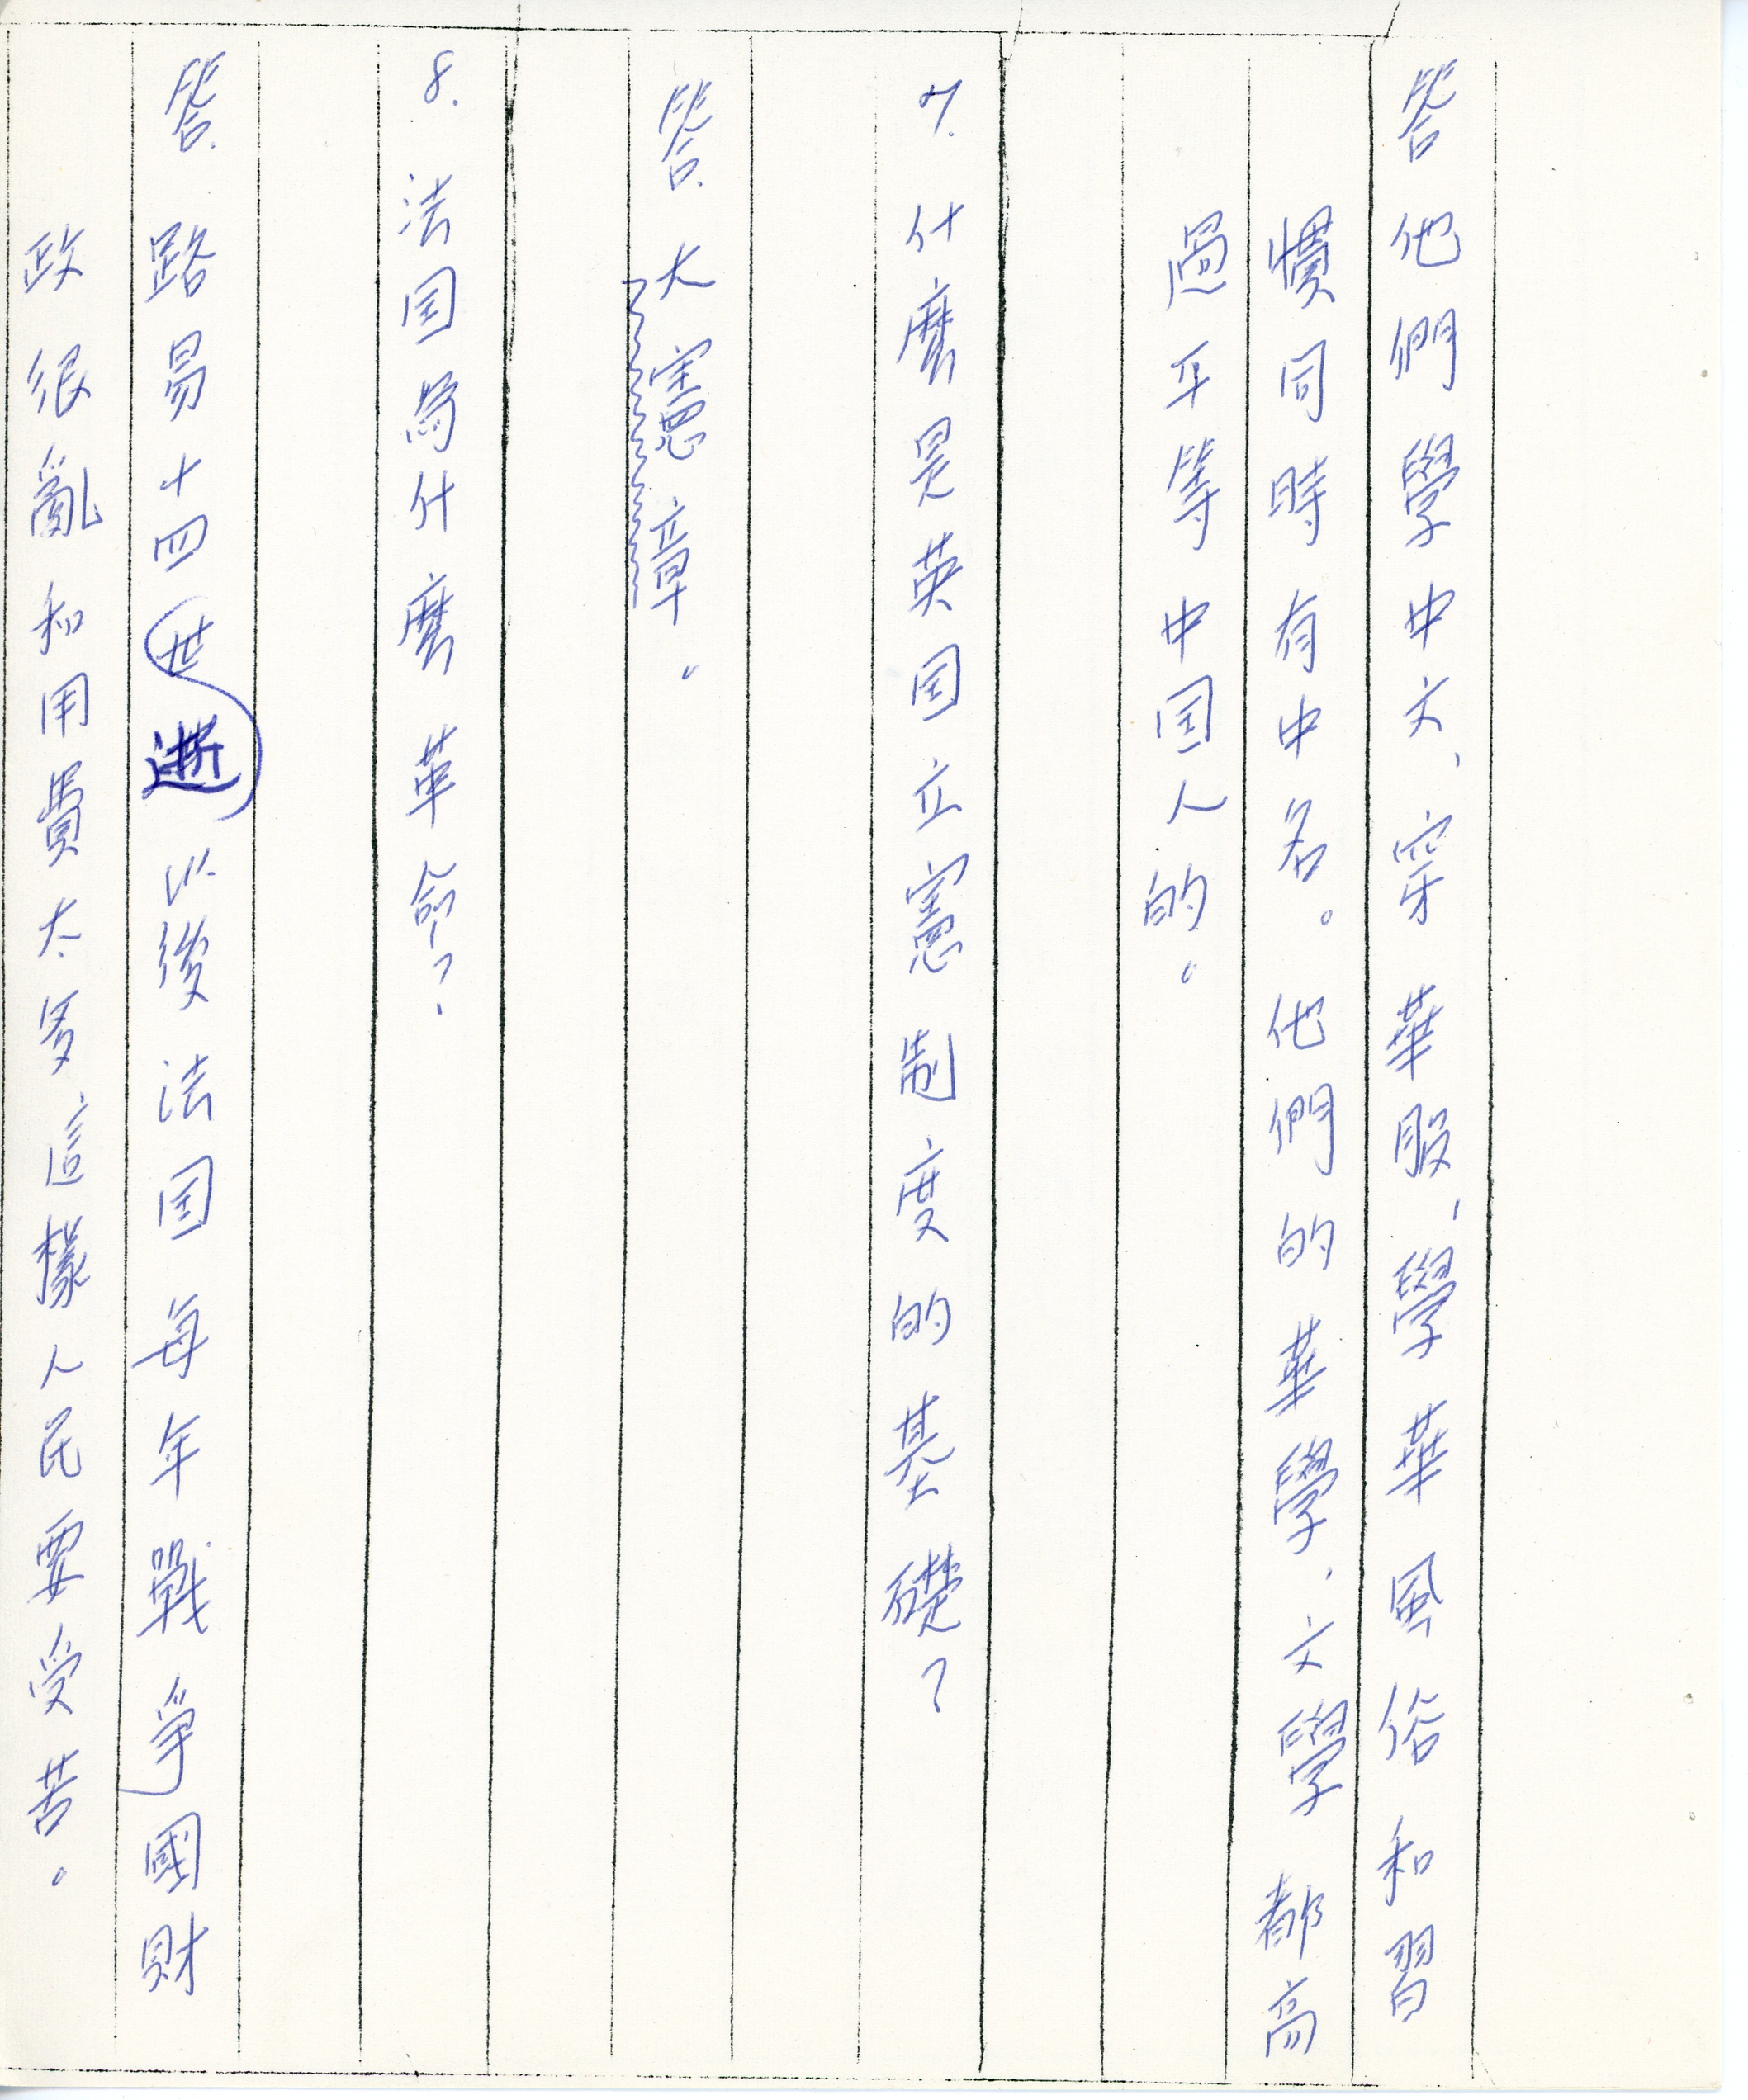 答 他們學中文、穿華服、學華風俗和習
慣同時有中名。他們的華學、文學都高
過平等中国人的。
7. 什麼是英国立憲制度的基礎?
答. 大憲章。
8. 法国為什麼革命?
答. 路易四十世進以後法国每年戰爭國財
政很亂和用費太多、這樣人民要受苦。